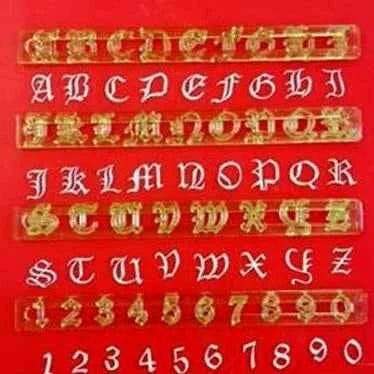 A B C D E F G H I
A B C D E F G H I
J K L M N O P Q R
J K L M N O P Q R
S T U V W X Y Z
S T U V W X Y Z
1 2 3 4 5 6 7 8 9 0
1 2 3 4 5 6 7 8 9 0